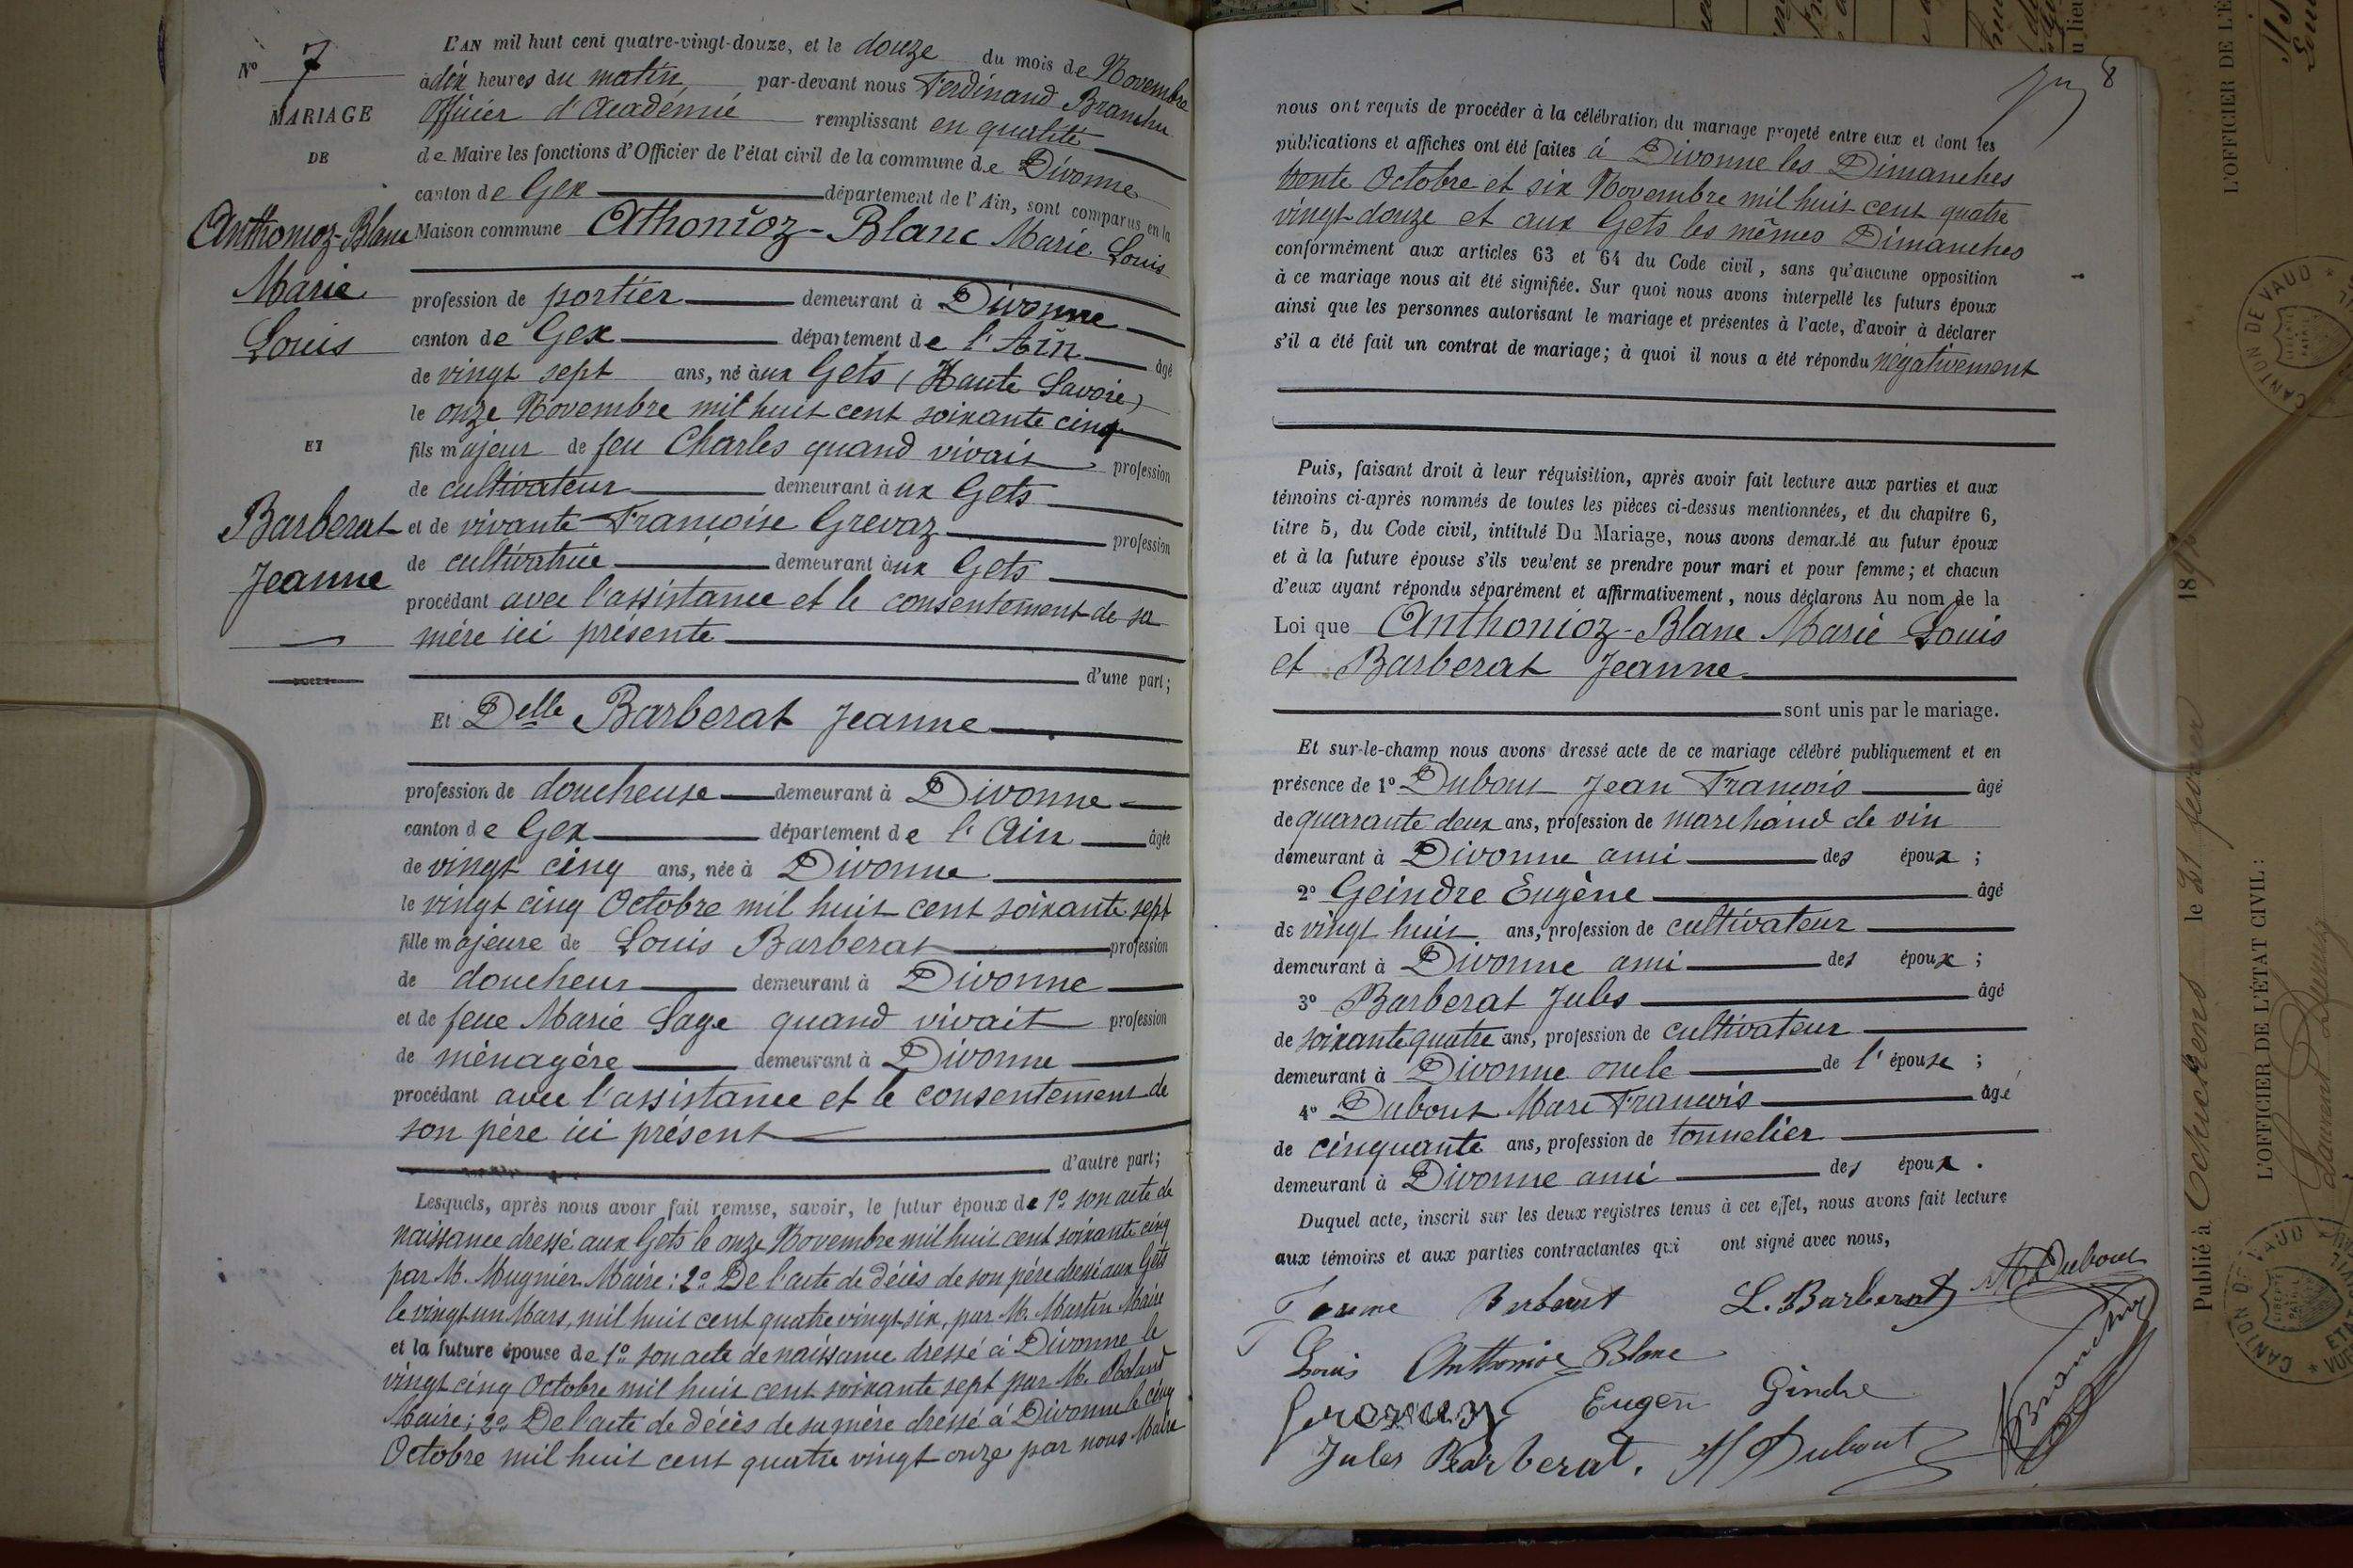 N° 7
MARIAGE
DE
Anthonioz-Blanc
Marie
Louis
ET
Barberat
Jeanne
L'AN mil huit cent quatre-vingt-douze, et le douze du mois de Novembre
à dix heures du matin, par-devant nous Ferdinand Branchu
Officier d'Académie remplissant en qualité
de Maire les fonctions d'Officier de l'état civil de la commune de Divonne
canton de Gex département de l'Ain, sont comparus en la
Maison commune Athonioz-Blanc Marie Louis
profession de portier demeurant à Divonne
canton de Gex département de l'Ain âgé
de vingt sept ans, né aux Gets (Haute Savoie)
le onze Novembre mil huit cent soixante cinq
fils majeur de feu Charles quand vivait profession
de cultivateur demeurant aux Gets
et de vivante Françoise Grevaz profession
de cultivatrice demeurant aux Gets
procédant avec l'assistance et le consentement de sa
mère ici présente
d'une part;
Et Delle Barberat Jeanne
profession de doucheuse demeurant à Divonne
canton de Gex département de l'Ain âgée
de vingt cinq ans, née à Divonne
le vingt cinq Octobre mil huit cent soixante sept
fille majeure de Louis Barberat profession
de doucheur demeurant à Divonne
et de feue Marie Sage quand vivait profession
de ménagère demeurant à Divonne
procédant avec l'assistance et le consentement de
son père ici présent
d'autre part;
Lesquels, après nous avoir fait remise, savoir, le futur époux de 1° son acte de
naissance dressé aux Gets le onze Novembre mil huit cent soixante cinq
par M. Mugnier Maire: 2° De l'acte de décès de son père dressé aux Gets
le vingt un Mars, mil huit cent quatre vingt six, par M. Martin Maire
et la future épouse de 1° son acte de naissance dressé à Divonne le
vingt cinq Octobre mil huit cent soixante sept par M. Roland
Maire; 2° De l'acte de décès de sa mère dressé à Divonne le cinq
Octobre mil huit cent quatre vingt onze par nous Maire
8
nous ont requis de procéder à la célébration du mariage projeté entre eux et dont les
publications et affiches ont été faites à Divonne les Dimanches
trente Octobre et six Novembre mil huit cent quatre
vingt douze et aux Gets les mêmes Dimanches
conformément aux articles 63 et 64 du Code civil, sans qu'aucune opposition
à ce mariage nous ait été signifiée. Sur quoi nous avons interpellé les futurs époux
ainsi que les personnes autorisant le mariage et présentes à l'acte, d'avoir à déclarer
s'il a été fait un contrat de mariage; à quoi il nous a été répondu négativement
Puis, faisant droit à leur réquisition, après avoir fait lecture aux parties et aux
témoins ci-après nommés de toutes les pièces ci-dessus mentionnées, et du chapitre 6,
titre 5, du Code civil, intitulé Du Mariage, nous avons demandé au futur époux
et à la future épouse s'ils veulent se prendre pour mari et pour femme; et chacun
d'eux ayant répondu séparément et affirmativement, nous déclarons Au nom de la
Loi que Anthonioz-Blanc Marie Louis
et Barberat Jeanne
sont unis par le mariage.
Et sur-le-champ nous avons dressé acte de ce mariage célébré publiquement et en
présence de 1° Dubout Jean François âgé
de quarante deux ans, profession de marchand de vin
demeurant à Divonne ami des époux;
2° Geindre Eugène âgé
de vingt huit ans, profession de cultivateur
demeurant à Divonne ami des époux;
3° Barberat Jules âgé
de soixante quatre ans, profession de cultivateur
demeurant à Divonne oncle de l'épouse;
4° Dubout Marc François âgé
de cinquante ans, profession de tonnelier
demeurant à Divonne ami des époux.
Duquel acte, inscrit sur les deux registres tenus à cet effet, nous avons fait lecture
aux témoins et aux parties contractantes qui ont signé avec nous,
L. Barberat M Dubout
Louis Anthonioz Blanc
Eugen Gindre
Jules Barberat. Dubout
Branchu
L'OFFICIER DE L'É
CANTON DE VAUD
Publié à le 21 février 18
L'OFFICIER DE L'ÉTAT CIVIL:
CANTON DE VAUD